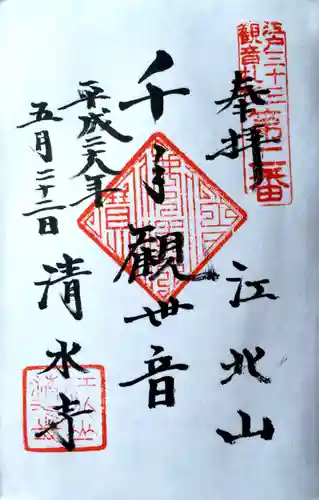 江戸三十三
観音札所第二番
奉拝
江北山
千手観世音
平成二八年
五月二十二日
清水寺